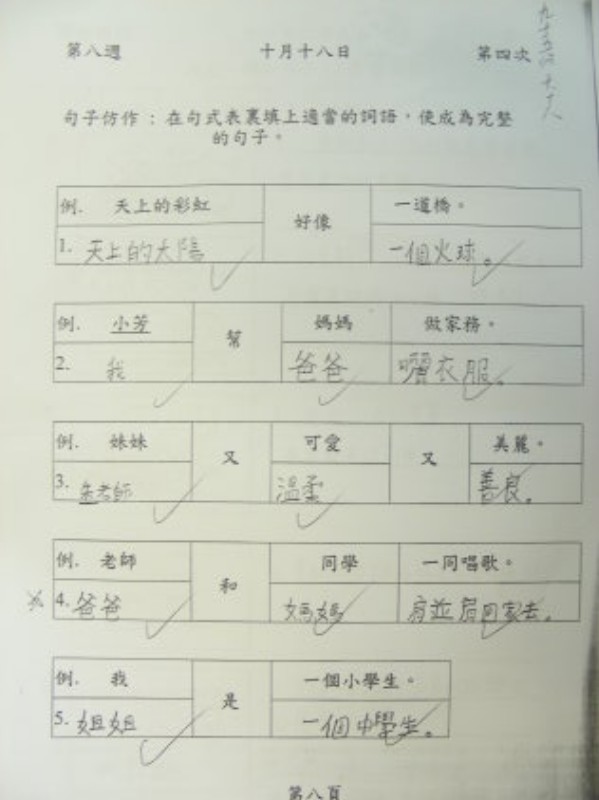 第八週 十月十八日 第四次
句子仿作：在句式表裏填上適當的詞語，使成為完整
的句子。
例. 天上的彩虹 好像 一道橋。
1. 天上的太陽 一個火球。
例. 小芳 幫 媽媽 做家務。
2. 我 爸爸 曬衣服。
例. 妹妹 又 可愛 又 美麗。
3. 老師 溫柔 善良。
例. 老師 和 同學 一同唱歌。
4. 爸爸 媽媽 肩並肩回家去。
例. 我 是 一個小學生。
5. 姐姐 一個中學生。
第八頁